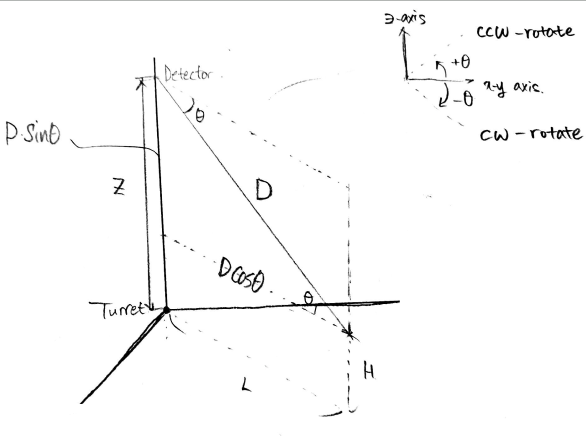 z-axis
CCW-rotate
+θ
x-y axis.
-θ
CW-rotate
Detector
θ
D·sinθ
Z
D
Dcosθ
θ
Turret
H
L